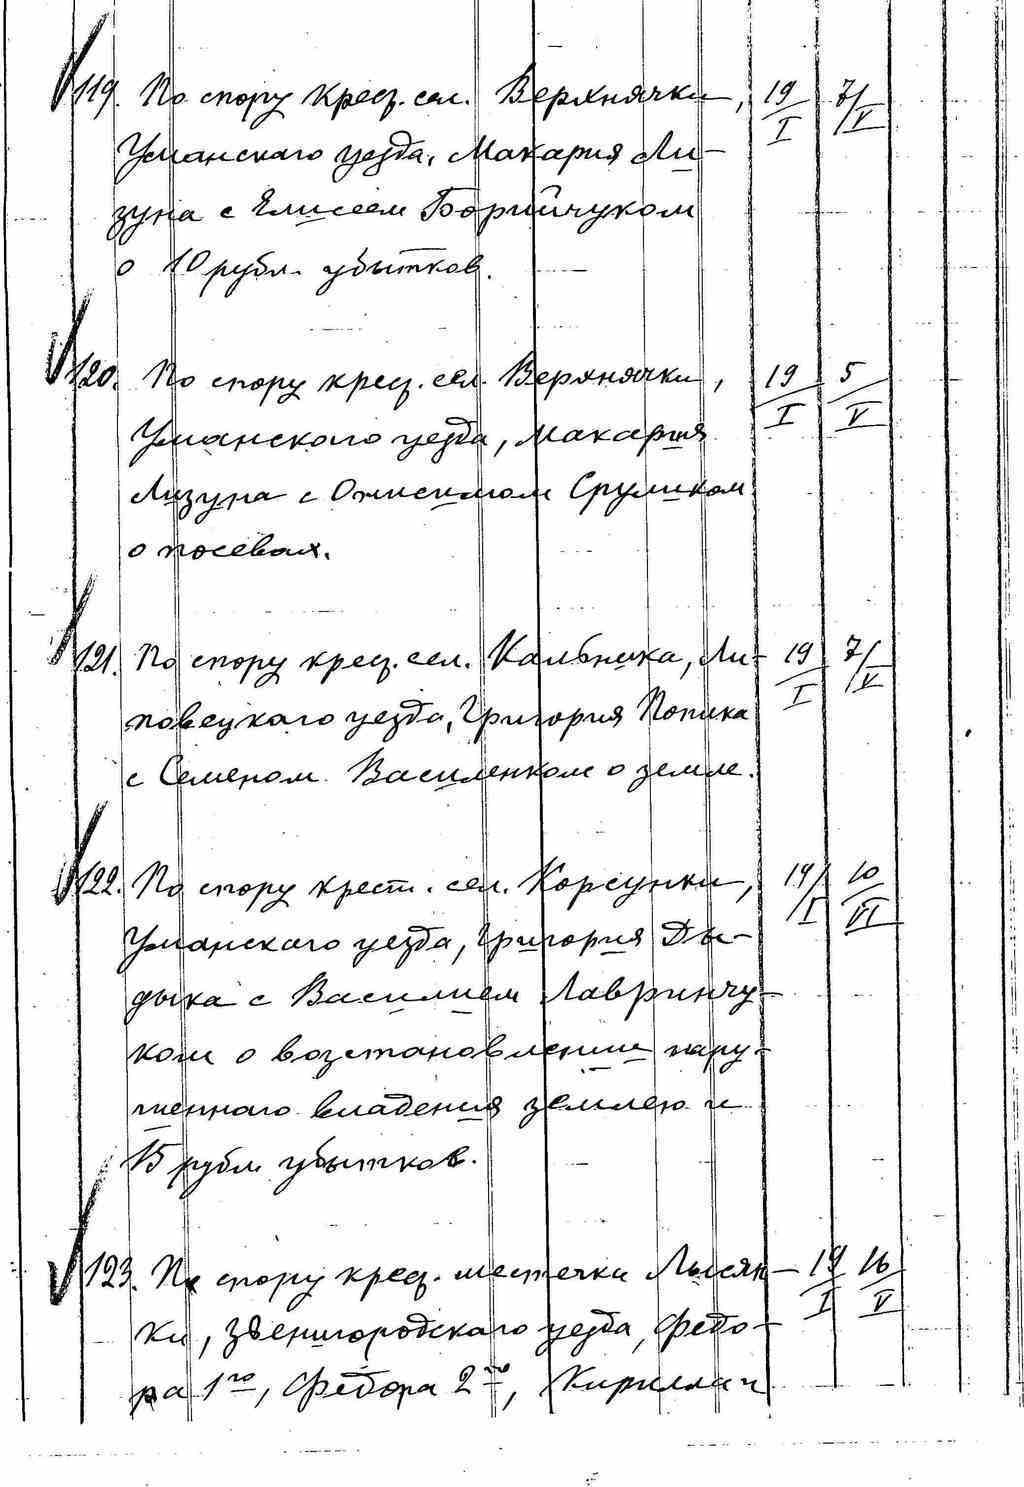 119. По спору крец. сел. Верхнячки, 19/I 7/V
Уманскаго уезда, Макария Ли-
зуна с Елисеем Борийчуком
о 10 рубл. убытков.
120. По спору крец. сел. Верхнячки, 19/I 5/V
Уманскаго уезда, Макария
Лизуна с Онисимом Сруликом
о посевах.
121. По спору крец. сел. Кальника, Ли- 19/I 7/V
повецкаго уезда, Григория Попика
с Семеном Василенком о земле.
122. По спору крест. сел. Корсунки, 19/I 10/VI
Уманскаго уезда, Григория Ды-
дыка с Василием Лавринчу-
ком о возстановлении нару-
шеннаго владения землею и
15 рубл. убытков.
123. По спору крец. местечка Лысян- 19/I 16/V
ки, Звенигородскаго уезда, Федо-
ра 1го, Федора 2го, Кирилла и